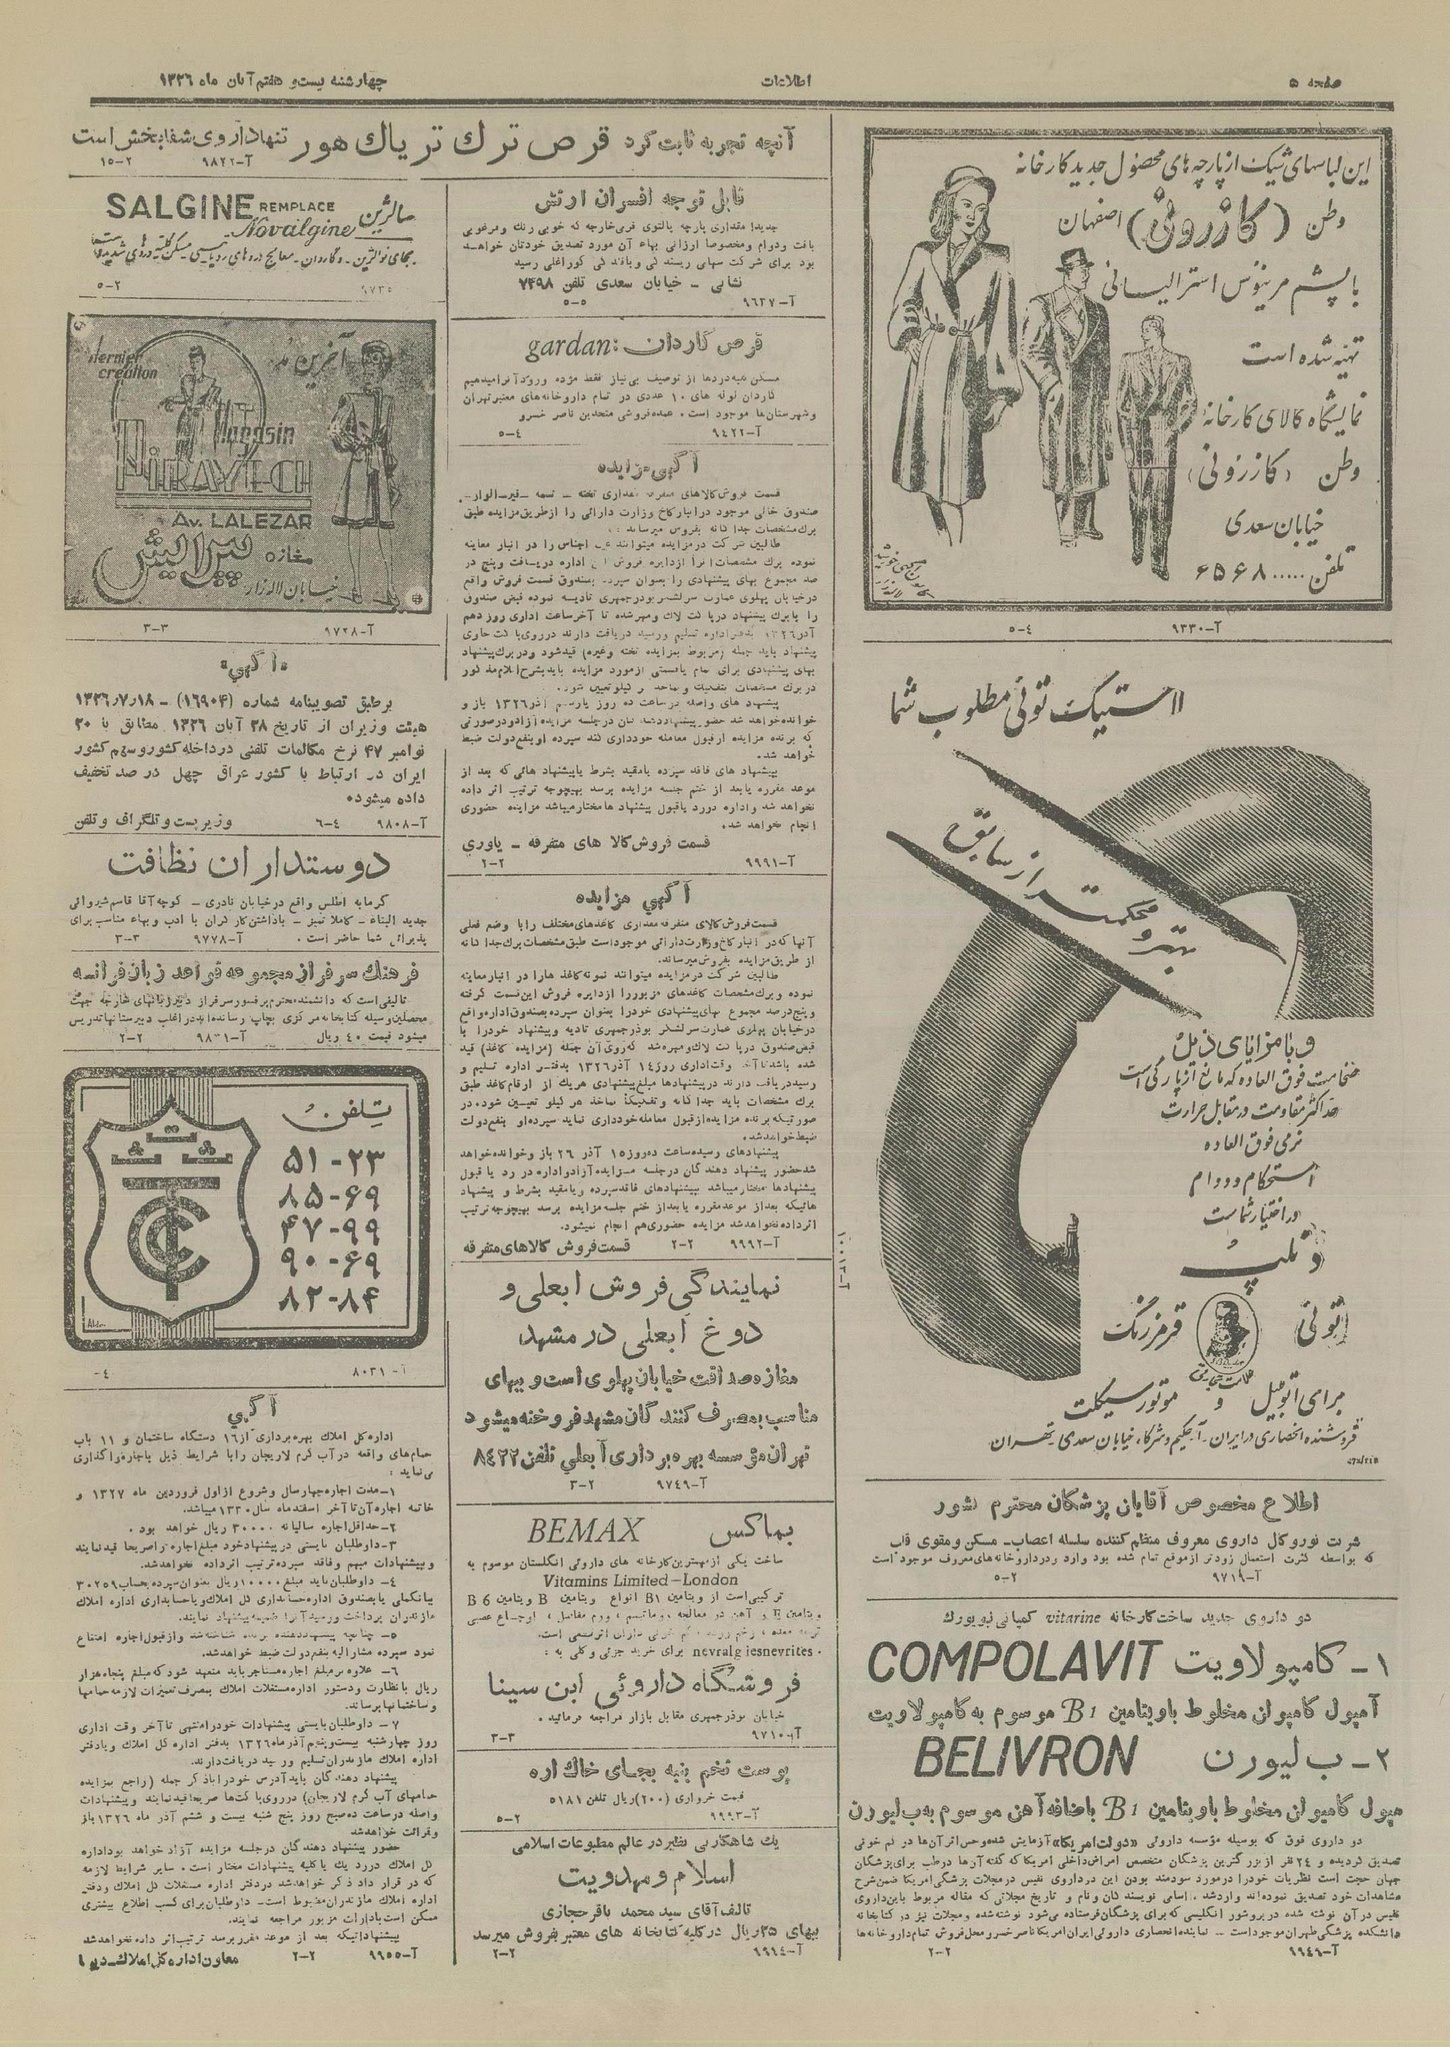 صفحه ۵
اطلاعات
چهارشنبه بیست و هفتم آبان ماه ۱۳۲۶
آنچه تجربه ثابت کرد قرص ترك تریاك هور تنها داروی شفابخش است
آ-۹۸۲۲ ۲-۱۵
این لباسهای شیک از پارچه های محصول جدید کارخانه
وطن (کازرونی) اصفهان
با پشم مرینوس استرالیائی
تهیه شده است
نمایشگاه کالای کارخانه
وطن (کازرونی)
خیابان سعدی
تلفن.....۶۵۶۸
آ-۹۳۳۰ ۴-۵
لاستیک توئی مطلوب شما
بهتر و محکمتر از سابق
و با مزایای ذیل
ضخامت فوق العاده که مانع از پارگی است
حداکثر مقاومت در مقابل حرارت
نرمی فوق العاده
استحکام و دوام
در اختیار شماست
توئی قرمز رنگ
برای اتومبیل و موتورسیکلت
فروشنده انحصاری در ایران- آ.حکیم و شرکاء خیابان سعدی تهران
آ-۱۰۰۱۲
اطلاع مخصوص آقایان پزشکان محترم کشور
شربت نوروکال داروی معروف منظم کننده سلسله اعصاب- مسکن و مقوی قلب
که بواسطه کثرت استعمال زودتر از موقع تمام شده بود وارد و در داروخانه های معروف موجود است
آ-۹۷۱۹ ۲-۵
دو داروی جدید ساخت کارخانه vitarine کمپانی نیویورك
۱- کامپولاویت COMPOLAVIT
آمپول کامپوان مخلوط با ویتامین B1 موسوم به کامپولاویت
۲- ب لیورن BELIVRON
مپول کامپوان مخلوط با ویتامین B1 باضافه آهن موسوم به ب لیورن
دو داروی فوق که بوسیله مؤسسه داروئی «دولت امریکا» آزمایش شده و حس اثر آن ها در کم خونی
تصدیق گردیده و ۲۴ نفر از بزرگترین پزشکان متخصص امراض داخلی امریکا که گفته آن ها در طب برای پزشکان
جهان حجت است نظریات خود را در مورد سودمند بودن این دو داروی نفیس در مجلات پزشکی امریکا ضمن شرح
مشاهدات خود تصدیق نموده اند وارد شد. اسامی نویسندگان و نام و تاریخ مجلاتی که مقاله مربوط باین داروی
نفیس در آن نوشته شده در بروشور انگلیسی که برای پزشکان فرستاده می شود نوشته شده و مجلات نیز در کتابخانه
دانشکده پزشکی طهران موجود است - نماینده انحصاری داروئی ایران امریکا ناصر خسرو محل فروش تمام داروخانه ها
آ-۹۹۴۹ ۲-۲
قابل توجه افسران ارتش
جدیدا مقداری پارچه پالتوی فرمی خارجه که خوبی رنك و مرغوبی
بافت و دوام و مخصوصا ارزانی بهاء آن مورد تصدیق خودتان خواهد
بود برای شرکت سهامی ریسندگی و بافندگی کوراغلی رسید
نشانی - خیابان سعدی تلفن ۷۴۹۸
آ-۹۶۳۷ ۵-۵
قرص گاردان :gardan
مسکن کلیه دردها از توصیف بی نیاز فقط مژده ورود آنرا میدهیم
گاردان لوله های ۱۰ عددی در تمام داروخانه های معتبر تهران
و شهرستان ها موجود است. عمده فروشی متحدین ناصر خسرو
آ-۹۴۲۲ ۴-۵
آگهی مزایده
قسمت فروش کالاهای متفرقه مقداری تخته - تسمه
صندوق خالی موجود در انبار کاخ وزارت دارائی را از طریق مزایده طبق
برك مشخصات جداگانه بفروش میرساند:
طالبین شرکت در مزایده میتوانند عین اجناس را در انبار معاینه
نموده برك مشخصات آنرا از دایره فروش این اداره دریافت و پنج در
صد مجموع بهای پیشنهادی را بعنوان سپرده بصندوق قسمت فروش واقع
در خیابان پهلوی عمارت سرلشکر بوذرجمهری تادیه نموده قبض صندوق
را با برك پیشنهاد در پاکت لاك و مهر شده تا آخر ساعت اداری روز دهم
آذر ۱۳۲۶ بدفتر اداره تسلیم و رسید دریافت دارند در روی پاکت حاوی
پیشنهاد باید جمله (مربوط بمزایده تخته و غیره) قید شود و در برك پیشنهاد
بهای پیشنهادی برای تمام یا قسمتی از مورد مزایده باید بشرح اقلام مذکور
در برك مشخصات بتفکیك و بعدد یا کیلو تعیین شود.
پیشنهاد های واصله در ساعت ده روز یازدهم آذر ۱۳۲۶ باز و
خوانده خواهد شد حضور پیشنهاد دهندگان در جلسه مزایده آزاد و در صورتی
که برنده مزایده از قبول معامله خودداری کند سپرده او بنفع دولت ضبط
خواهد شد.
پیشنهاد های فاقد سپرده یا مقید بشرط یا پیشنهاد هائی که بعد از
موعد مقرره یا بعد از ختم جلسه مزایده برسد بهیچوجه ترتیب اثر داده
نخواهد شد و اداره در رد یا قبول پیشنهاد ها مختار میباشد مزایده حضوری
انجام خواهد شد.
قسمت فروش کالا های متفرقه - یاوری
آ-۹۹۹۱ ۲-۲
آگهی مزایده
قسمت فروش کالای متفرقه مقداری کاغذهای مختلف را با وضع فعلی
آنها که در انبار کاخ وزارت دارائی موجود است طبق مشخصات برك جداگانه
از طریق مزایده بفروش میرساند.
طالبین شرکت در مزایده میتوانند نمونه کاغذ ها را در انبار معاینه
نموده و برك مشخصات کاغذهای مزبور را از دایره فروش این قسمت گرفته
و پنج درصد مجموع بهای پیشنهادی خود را بعنوان سپرده بصندوق اداره واقع
در خیابان پهلوی عمارت سرلشکر بوذرجمهری تادیه و پیشنهاد خود را با
قبض صندوق در پاکت لاك و مهر شده که روی آن جمله (مزایده کاغذ) قید
شده باشد تا آخر وقت اداری روز ۱۴ آذر ۱۳۲۶ بدفتر اداره تسلیم و
رسید دریافت دارند در پیشنهادها مبلغ پیشنهادی هریك از ارقام کاغذ طبق
برك مشخصات باید جداگانه و تفکیك ماخذ هر کیلو تعیین شود. در
صورتیکه برنده مزایده از قبول معامله خودداری نماید سپرده او بنفع دولت
ضبط خواهد شد.
پیشنهادهای رسیده ساعت ده روز ۱۵ آذر ۲۶ باز و خوانده خواهد
شد حضور پیشنهاد دهندگان در جلسه مزایده آزاد و اداره در رد یا قبول
پیشنهادها مختار میباشد پیشنهادهای فاقد سپرده و یا مقید بشرط و پیشنهاد
هائیکه بعد از موعد مقرره یا بعد از ختم جلسه مزایده برسد بهیچوجه ترتیب
اثر داده نخواهد شد مزایده حضوری هم انجام نمیشود.
آ-۹۹۹۲ ۲-۲ قسمت فروش کالاهای متفرقه
نمایندگی فروش آبعلی و
دوغ آبعلی در مشهد
مغازه صداقت خیابان پهلوی است و ببهای
مناسب بمصرف کنندگان مشهد فروخته میشود
تهران مؤسسه بهره برداری آبعلی تلفن ۸۴۲۲
آ-۹۷۴۹ ۲-۳
بماکس BEMAX
ساخت یکی از مهمترین کارخانه های داروئی انگلستان موسوم به
Vitamins Limited-London
ترکیبی است از ویتامین B1 انواع ویتامین B و ویتامین B 6
ویتامین E و آهن در معالجه روماتیسم ، ورم مفاصل ، اوجاع عصبی
nevralgiesnevrites برای خرید جزئی و کلی به :
فروشگاه داروئی ابن سینا
خیابان بوذرجمهری مقابل بازار مراجعه فرمائید.
آ-۹۷۱۰ ۳-۳
پوست تخم پنبه بجای خاك اره
قیمت خرواری (۲۰۰) ریال تلفن ۵۱۸۱
آ-۹۹۹۳ ۲-۵
یك شاهکار بی نظیر در عالم مطبوعات اسلامی
اسلام و مهدویت
تالف آقای سید محمد باقر حجازی
ببهای ۲۵ ریال در کلیه کتابخانه های معتبر بفروش میرسد
آ-۹۹۶۴ ۲-۲
سالژین SALGINE REMPLACE Novalgine
بجای نوالژین - و گاردان - معالج دردهای رماتیسمی مسکن کلیه دردهای شدید
۹۷۳۵ ۲-۵
dernier création
آخرین مد
Magasin
PIRAYECH
Av. LALEZAR
مغازه پیرایش
خیابان لاله زار
آ-۹۷۲۸ ۳-۳
«آگهی»
برطبق تصویبنامه شماره (۱۶۹۰۴) - ۱۳۲۶٫۷٫۱۸
هیئت وزیران از تاریخ ۲۸ آبان ۱۳۲۶ مطابق با ۲۰
نوامبر ۴۷ نرخ مکالمات تلفنی در داخله کشور و سهم کشور
ایران در ارتباط با کشور عراق چهل در صد تخفیف
داده میشود.
آ-۹۸۰۸ ۴-۶ وزیر پست و تلگراف و تلفن
دوستداران نظافت
گرمابه اطلس واقع در خیابان نادری - کوچه آقا قاسم شیروانی
جدید البناء - کاملا تمیز - با داشتن کارگران با ادب و بهاء مناسب برای
پذیرائی شما حاضر است. آ-۹۷۷۸ ۳-۳
فرهنك سرفراز مجموعه قواعد زبان فرانسه
تالیفی است که دانشمند محترم پرفسور سرفراز دکتر زبانهای خارجه جهت
محصلین وسیله کتابخانه مرکزی بچاپ رسانده اند در اغلب دبیرستانها تدریس
میشود قیمت ۴۰ ریال آ-۹۸۳۱ ۲-۲
تلفن
۵۱-۲۳
۸۵-۶۹
۴۷-۹۹
۹۰-۶۹
۸۲-۸۴
آ-۸۰۳۱ ۴-
آگهی
اداره کل املاك بهره برداری از ۱۶ دستگاه ساختمان و ۱۱ باب
حمام های واقعه در آب گرم لاریجان را با شرایط ذیل باجاره واگذاری
می نماید:
۱-مدت اجاره چهار سال و شروع از اول فروردین ماه ۱۳۲۷ و
خاتمه اجاره آن تا آخر اسفند ماه سال ۱۳۳۰ میباشد.
۲-حداقل اجاره سالیانه ۳۰۰۰۰ ریال خواهد بود.
۳-داوطلبان بایستی در پیشنهاد خود مبلغ اجاره را صریحا قید نمایند
و بپیشنهادات مبهم و فاقد سپرده ترتیب اثر داده نخواهد شد.
۴- داوطلبان باید مبلغ ۱۰۰۰۰ ریال بعنوان سپرده بحساب ۳۰۲۵۹
ببانك ملی یا بصندوق اداره حسابداری کل املاك و یا حسابداری اداره املاك
مازندران پرداخت و رسید آنرا ضمیمه پیشنهاد نمایند.
۵- چنانچه پیشنهاد دهنده برنده شناخته شد و از قبول اجاره امتناع
نمود سپرده مشارالیه بنفع دولت ضبط خواهد شد.
۶- علاوه بر مبلغ اجاره مستاجر باید متعهد شود که مبلغ پنجاه هزار
ریال با نظارت و دستور اداره مستغلات املاك بمصرف تعمیرات لازمه حمامها
و ساختمانها برساند.
۷- داوطلبان بایستی پیشنهادات خود را منتهی تا آخر وقت اداری
روز چهارشنبه بیست و پنجم آذر ماه ۱۳۲۶ بدفتر اداره کل املاك و یا دفتر
اداره املاك مازندران تسلیم و رسید دریافت دارند.
پیشنهاد دهندگان باید آدرس خود را با ذکر جمله (راجع بمزایده
حمامهای آب گرم لاریجان) در روی پاکت ها صریحا قید نمایند و پیشنهادات
واصله در ساعت ده صبح روز پنج شنبه بیست و ششم آذر ماه ۱۳۲۶ باز
و قرائت خواهد شد
حضور پیشنهاد دهندگان در جلسه مزایده آزاد خواهد بود اداره
کل املاك در رد یك یا کلیه پیشنهادات مختار است. سایر شرایط لازمه
که در قرار داد ذکر خواهد شد در دفتر اداره مستغلات کل املاك و دفتر
اداره املاك مازندران مضبوط است- داوطلبان برای کسب اطلاع بیشتری
ممکن است بادارات مزبور مراجعه نمایند.
پیشنهاداتیکه بعد از موعد مقرر برسد ترتیب اثر داده نخواهد شد
آ-۹۹۵۵ ۲-۲ معاون اداره کل املاك-